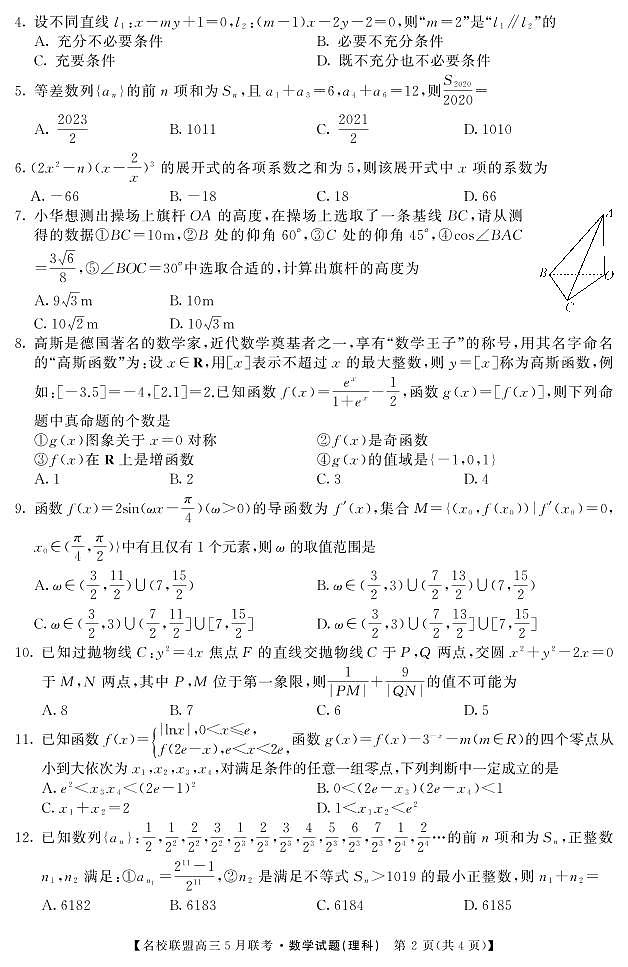 4. 设不同直线 l₁:x－my＋1＝0,l₂:(m－1)x－2y－2＝0,则“m＝2”是“l₁∥l₂”的
A. 充分不必要条件 B. 必要不充分条件
C. 充要条件 D. 既不充分也不必要条件
5. 等差数列{aₙ}的前 n 项和为 Sₙ,且 a₁＋a₃＝6,a₄＋a₆＝12,则S₂₀₂₀/2020＝
A. 2023/2 B. 1011 C. 2021/2 D. 1010
6. (2x²－n)(x－2/x)³ 的展开式的各项系数之和为 5,则该展开式中 x 项的系数为
A. －66 B. －18 C. 18 D. 66
7. 小华想测出操场上旗杆 OA 的高度,在操场上选取了一条基线 BC,请从测
得的数据①BC＝10m,②B 处的仰角 60°,③C 处的仰角 45°,④cos∠BAC
＝3√6/8,⑤∠BOC＝30°中选取合适的,计算出旗杆的高度为
A. 9√3 m B. 10m
C. 10√2 m D. 10√3 m
A
B
O
C
8. 高斯是德国著名的数学家,近代数学奠基者之一,享有“数学王子”的称号,用其名字命名
的“高斯函数”为:设 x∈R,用[x]表示不超过 x 的最大整数,则 y＝[x]称为高斯函数,例
如:[－3.5]＝－4,[2.1]＝2.已知函数 f(x)＝eˣ/(1＋eˣ)－1/2,函数 g(x)＝[f(x)],则下列命
题中真命题的个数是
①g(x)图象关于 x＝0 对称 ②f(x)是奇函数
③f(x)在 R 上是增函数 ④g(x)的值域是{－1,0,1}
A. 1 B. 2 C. 3 D. 4
9. 函数 f(x)＝2sin(ωx－π/4)(ω＞0)的导函数为 f′(x),集合 M＝{(x₀,f(x₀))|f′(x₀)＝0,
x₀∈(π/4,π/2)}中有且仅有 1 个元素,则 ω 的取值范围是
A. ω∈(3/2,11/2)∪(7,15/2) B. ω∈(3/2,3)∪(7/2,13/2)∪(7,15/2)
C. ω∈(3/2,3)∪(7/2,11/2]∪[7,15/2] D. ω∈(3/2,3)∪(7/2,13/2]∪[7,15/2]
10. 已知过抛物线 C:y²＝4x 焦点 F 的直线交抛物线 C 于 P,Q 两点,交圆 x²＋y²－2x＝0
于 M,N 两点,其中 P,M 位于第一象限,则1/|PM|＋9/|QN|的值不可能为
A. 8 B. 7 C. 6 D. 5
11. 已知函数 f(x)＝{|lnx|,0＜x≤e, f(2e－x),e＜x＜2e,函数 g(x)＝f(x)－3⁻ˣ－m(m∈R)的四个零点从
小到大依次为 x₁,x₂,x₃,x₄,对满足条件的任意一组零点,下列判断中一定成立的是
A. e²＜x₃x₄＜(2e－1)² B. 0＜(2e－x₃)(2e－x₄)＜1
C. x₁＋x₂＝2 D. 1＜x₁x₂＜e²
12. 已知数列{aₙ}:1/2,1/2²,2/2²,3/2²,1/2³,2/2³,3/2³,4/2³,5/2³,6/2³,7/2³,1/2⁴,2/2⁴…的前 n 项和为 Sₙ,正整数
n₁,n₂ 满足:①aₙ₁＝(2¹¹－1)/2¹¹,②n₂ 是满足不等式 Sₙ＞1019 的最小正整数,则 n₁＋n₂＝
A. 6182 B. 6183 C. 6184 D. 6185
【名校联盟高三5月联考·数学试题(理科) 第 2 页(共 4 页)】